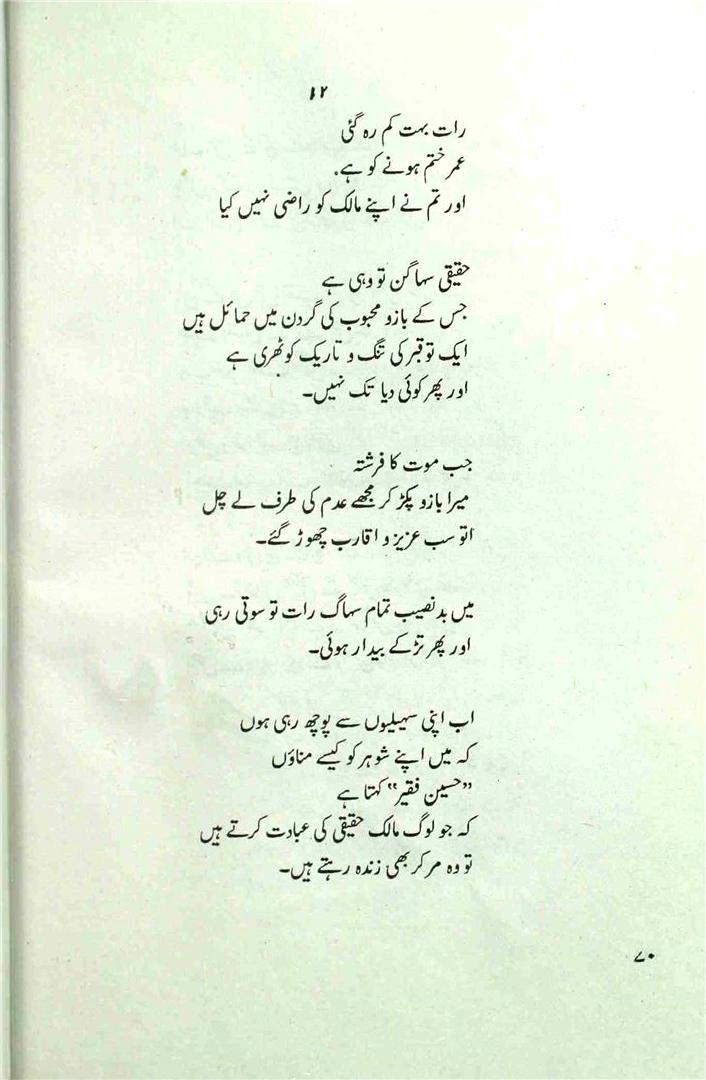 ۱۲
رات بہت کم رہ گئی
عمر ختم ہونے کو ہے.
اور تم نے اپنے مالک کو راضی نہیں کیا
حقیقی سہاگن تو وہی ہے
جس کے بازو محبوب کی گردن میں حمائل ہیں
ایک تو قبر کی تنگ و تاریک کوٹھری ہے
اور پھر کوئی دیا تک نہیں۔
جب موت کا فرشتہ
میرا بازو پکڑ کر مجھے عدم کی طرف لے چل
اتو سب عزیز و اقارب چھوڑ گئے۔
میں بدنصیب تمام سہاگ رات تو سوتی رہی
اور پھر تڑکے بیدار ہوئی۔
اب اپنی سہیلیوں سے پوچھ رہی ہوں
کہ میں اپنے شوہر کو کیسے مناؤں
”حسین فقیر“ کہتا ہے
کہ جو لوگ مالک حقیقی کی عبادت کرتے ہیں
تو وہ مر کر بھی زندہ رہتے ہیں۔
۷۰